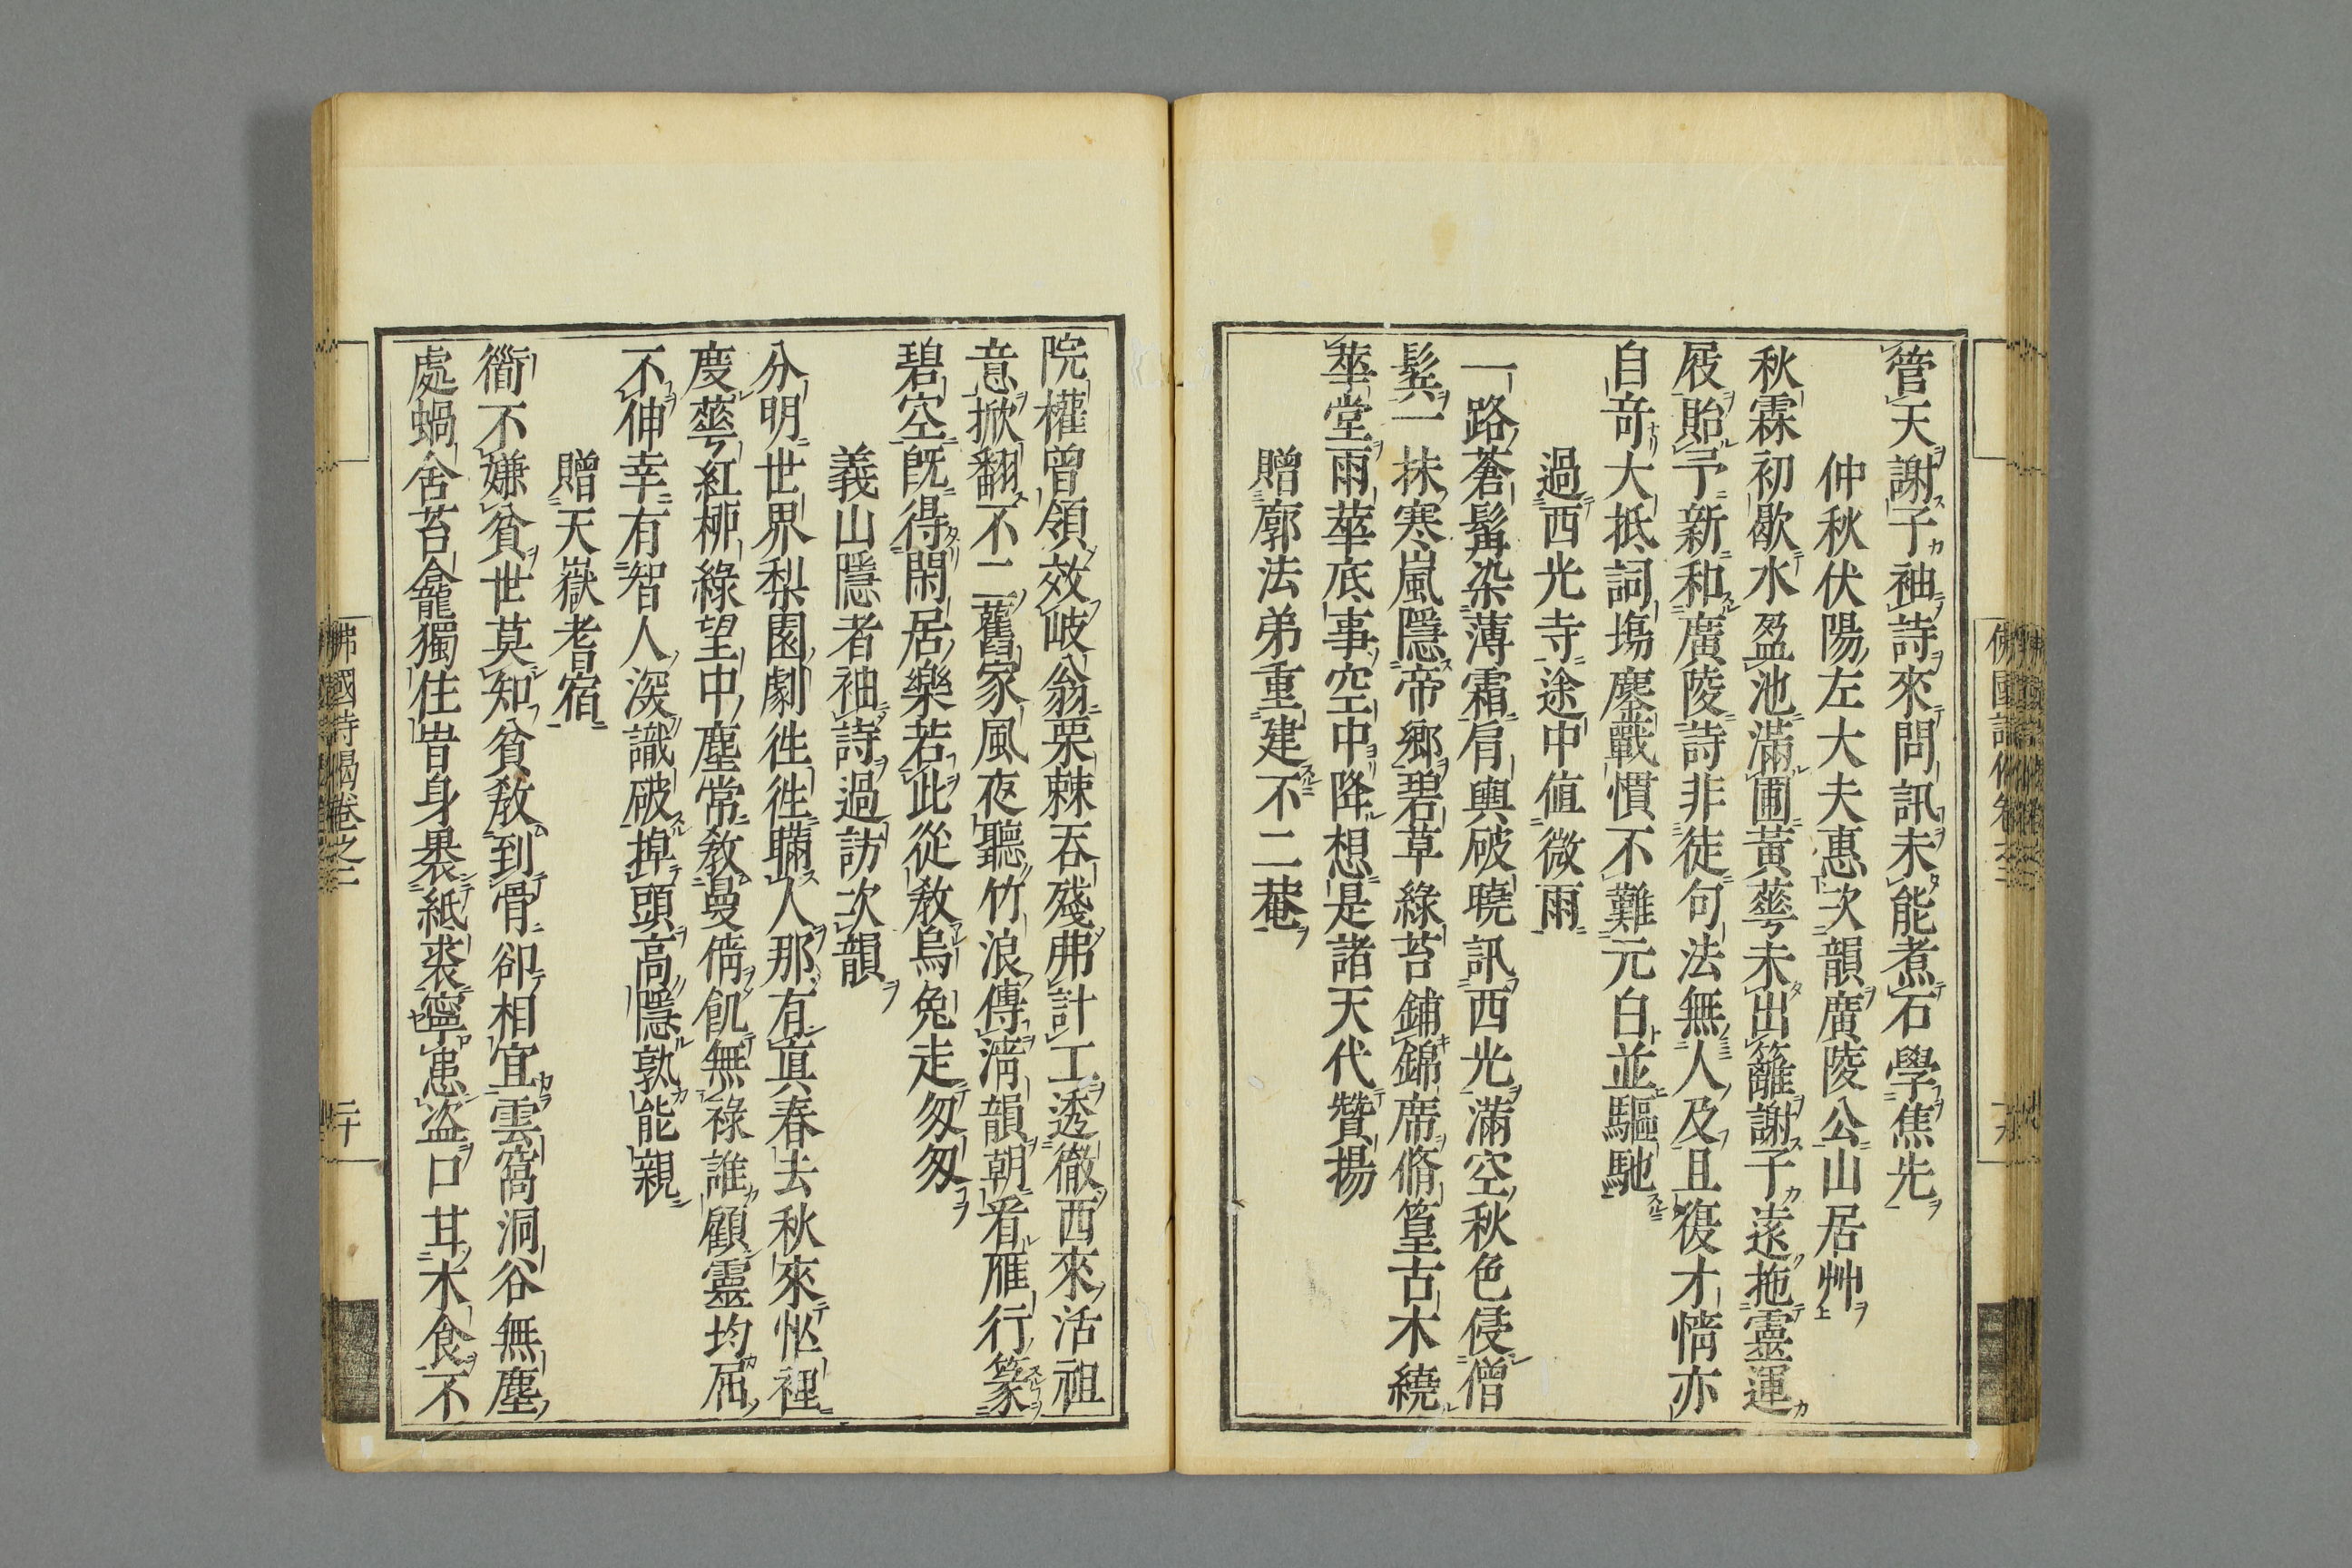 管天謝子袖詩來問訊未能煮石學焦先
仲秋伏陽左大夫惠次韻廣陵公山居艸
秋霖初歇水盈池滿圃黃蕚未出籬謝子遠拖靈運
屐貽予新和廣陵詩非徒句法無人及且復才情亦
自奇大抵詞塲鏖戰慣不難元白並驅馳
過西光寺途中値微雨
一路蒼髯染薄霜肩輿破曉訊西光滿空秋色侵僧
鬂一抹寒嵐隱帝鄉碧草綠苔鋪錦席脩篁古木繞
華堂雨華底事空中降想是諸天代贊揚
贈廓法弟重建不二菴
院權曾領效岐翁栗棘吞殘弗計工透徹西來活祖
意掀翻不二舊家風夜聽竹浪傳淸韻朝看雁行篆
碧空旣得閑居樂若此從敎烏兔走匆匆
義山隱者袖詩過訪次韻
分明世界梨園劇徃徃瞞人那有眞春去秋來忙裡
度蕚紅柳綠望中塵常敎曼倩飢無祿誰顧靈均屈
不伸幸有智人深識破掉頭高隱孰能親
贈天嶽耆宿
衜不嫌貧世莫知貧敎到骨卻相宜雲窩洞谷無塵
處蝸舍苔龕獨住旹身裹紙裘寧患盜口甘木食不
佛國詩偈卷之二
二十